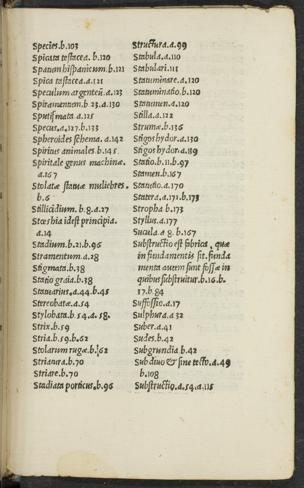 Species.b.103
Spicata testacea.b.120
Spanum hispanicum.b.121
Spica testacea.a.121
Speculum argenteū.a.123
Spiramentum.b.23.a.130
Sputismata.a.125
Specus.a.127.b.133
Spheroides schema.a.142
Spiritus animales b.145.
Spiritale genus machinæ.
a.167
Stolatæ statuæ muliebres.
b.6
Stillicidium.b.8.a.27
Stœchia idest principia.
a.14
Stadium.b.21.b.96
Stramentum.a.28
Stigmata.b.38
Statio graia.b.38
Statuarius.a.44.b.45
Stereobatæ.a.54
Stylobata.b.54.a.58.
Strix.b.59
Stria.b.59.b.62
Stolarum rugæ.b.62
Striatura.b.70
Striare.b.70
Stadiata porticus.b.96
Structura.a.99
Stabula.a.110
Stabulari.111
Statuminare.a.120
Statuminatio.b.120
Statumen.a.120
Stilla.a.122
Strumæ.b.136
Stigos hydor.a.130
Stigos hydor.a.119
Statio.b.11.b.97
Stamen.b.167
Statutio.a.170
Statera.a.171.b.173
Stropha b.173
Styllus.a.177
Sucula a 8.b.167
Substructio est fabrica, quæ
in fundamentis sit. funda
menta autem sunt fossæ in
quibus substruitur.b.16.b.
17.b.84
Suffossio.a.17
Sulphura.a 32
Suber.a.41
Sudes.b.42
Subgrundia b.42
Sub diuo & sine tecto.a.49
b.108
Substructio.a.54.a.115